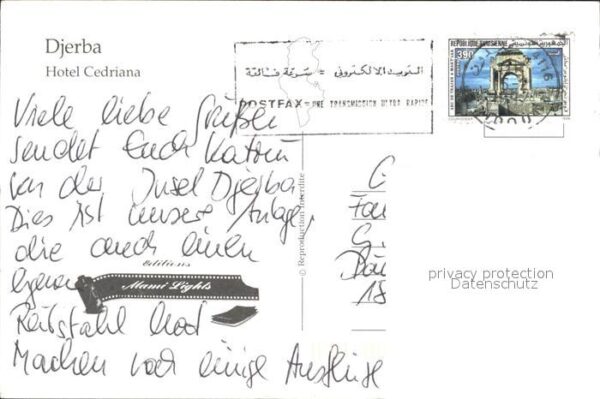 Djerba
Hotel Cedriana
البريد الالكتروني = سرعة فائقة
POSTFAX = UNE TRANSMISSION ULTRA RAPIDE
REPUBLIQUE TUNISIENNE
390
Viele liebe Grüße
sendet Euch Katrin
von der Insel Djerba
Dies ist unsere Anlage,
die auch einen
eigenen
Reitstahl hat
Machen noch einige Ausflüge
editions
Mami Lights
© Reproduction Interdite
G
Fam
G
18
privacy protection
Datenschutz